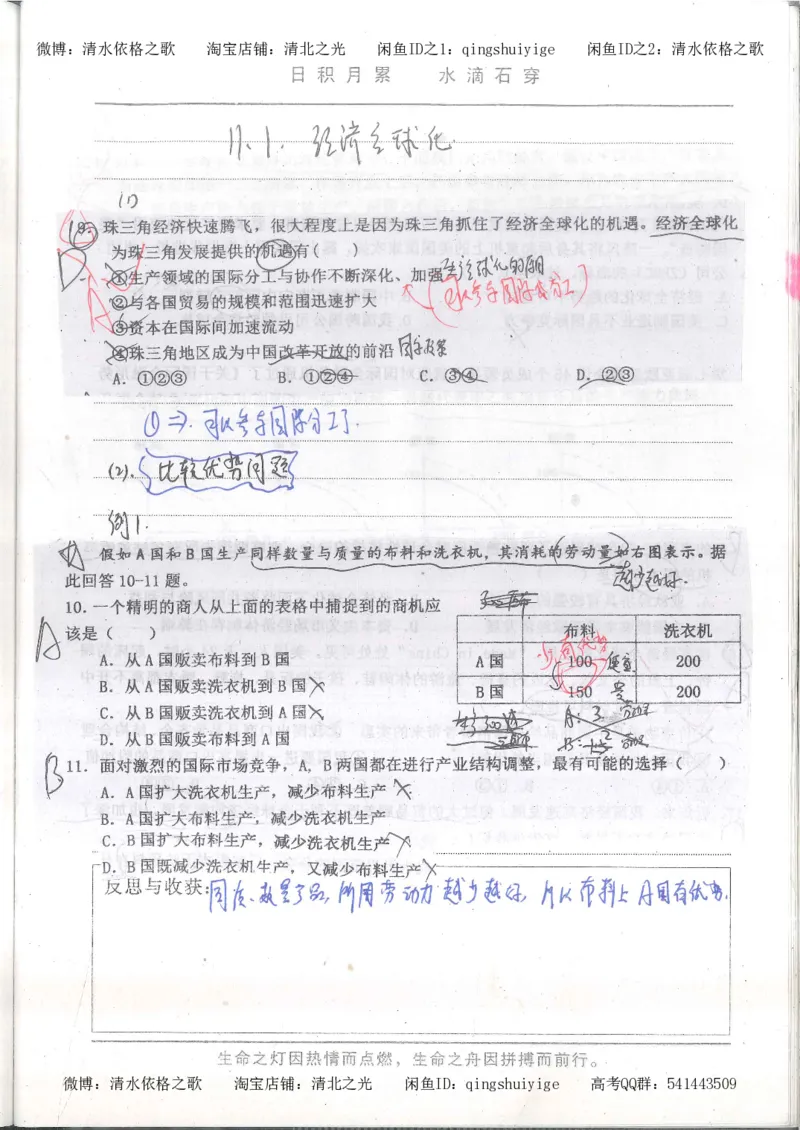 微博：清水依格之歌 淘宝店铺：清北之光 闲鱼ID之1：qingshuiyige 闲鱼ID之2：清水依格之歌
日积月累 水滴石穿
11.1. 经济全球化
(1)
19. 珠三角经济快速腾飞，很大程度上是因为珠三角抓住了经济全球化的机遇。经济全球化
为珠三角发展提供的机遇有( )
①生产领域的国际分工与协作不断深化、加强
可以参与国际分工
②与各国贸易的规模和范围迅速扩大
③资本在国际间加速流动
④珠三角地区成为中国改革开放的前沿 国家政策
A. ①②③ B. ①②④ C. ③④ D. ②③
①⇒ 可以参与国际分工了.
(2). 比较优势问题
例1.
假如A国和B国生产同样数量与质量的布料和洗衣机，其消耗的劳动量如右图表示。据
此回答10-11题。
越少越好.
10. 一个精明的商人从上面的表格中捕捉到的商机应
该是( )
A
布料 洗衣机
A国 100 200
B国 150 200
便宜
贵
A. 从A国贩卖布料到B国
B. 从A国贩卖洗衣机到B国
C. 从B国贩卖洗衣机到A国
D. 从B国贩卖布料到A国
B
11. 面对激烈的国际市场竞争，A，B两国都在进行产业结构调整，最有可能的选择( )
A. A国扩大洗衣机生产，减少布料生产
B. A国扩大布料生产，减少洗衣机生产
C. B国扩大布料生产，减少洗衣机生产
D. B国既减少洗衣机生产，又减少布料生产
反思与收获: 同质、数量产品, 所用劳动力越少越好, 所以布料上A国有优势.
生命之灯因热情而点燃，生命之舟因拼搏而前行。
微博：清水依格之歌 淘宝店铺：清北之光 闲鱼ID：qingshuiyige 高考QQ群：541443509